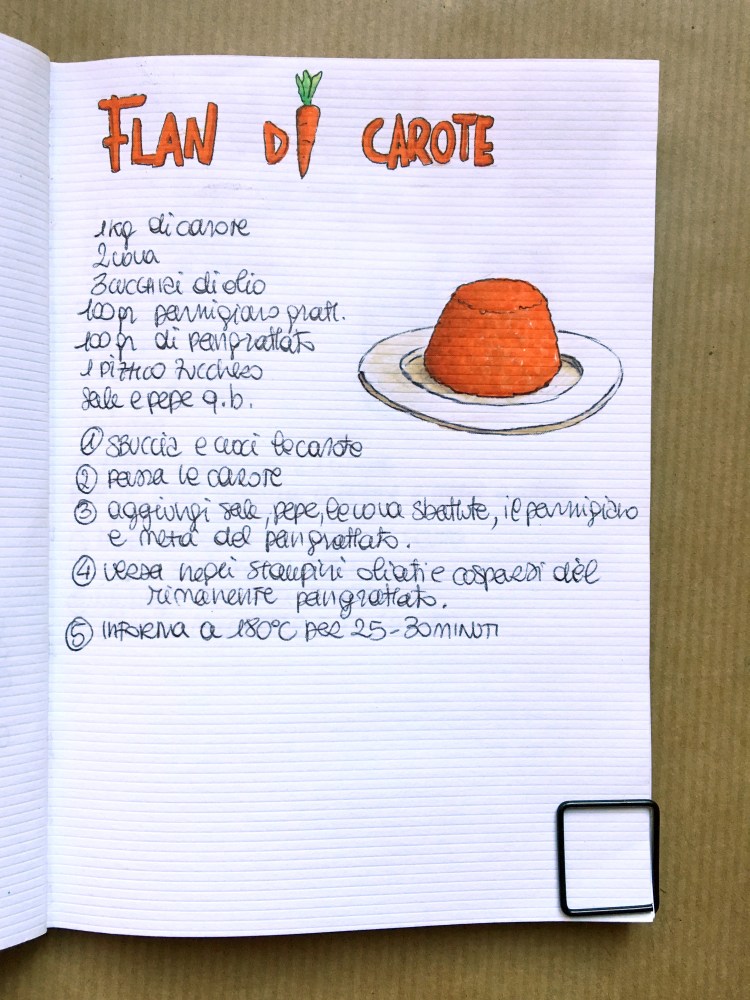 FLAN DI CAROTE
1 kg di carote
2 uova
3 cucchiai di olio
100 gr parmigiano gratt.
100 gr di pangrattato
1 pizzico zucchero
sale e pepe q.b.
① SBUCCIA e cuoci le carote
② passa le carote
③ aggiungi sale, pepe, le uova sbattute, il parmigiano
e metà del pangrattato.
④ versa negli stampini oliati e cosparsi del
rimanente pangrattato.
⑤ INFORNA a 180°C PER 25-30 MINUTI